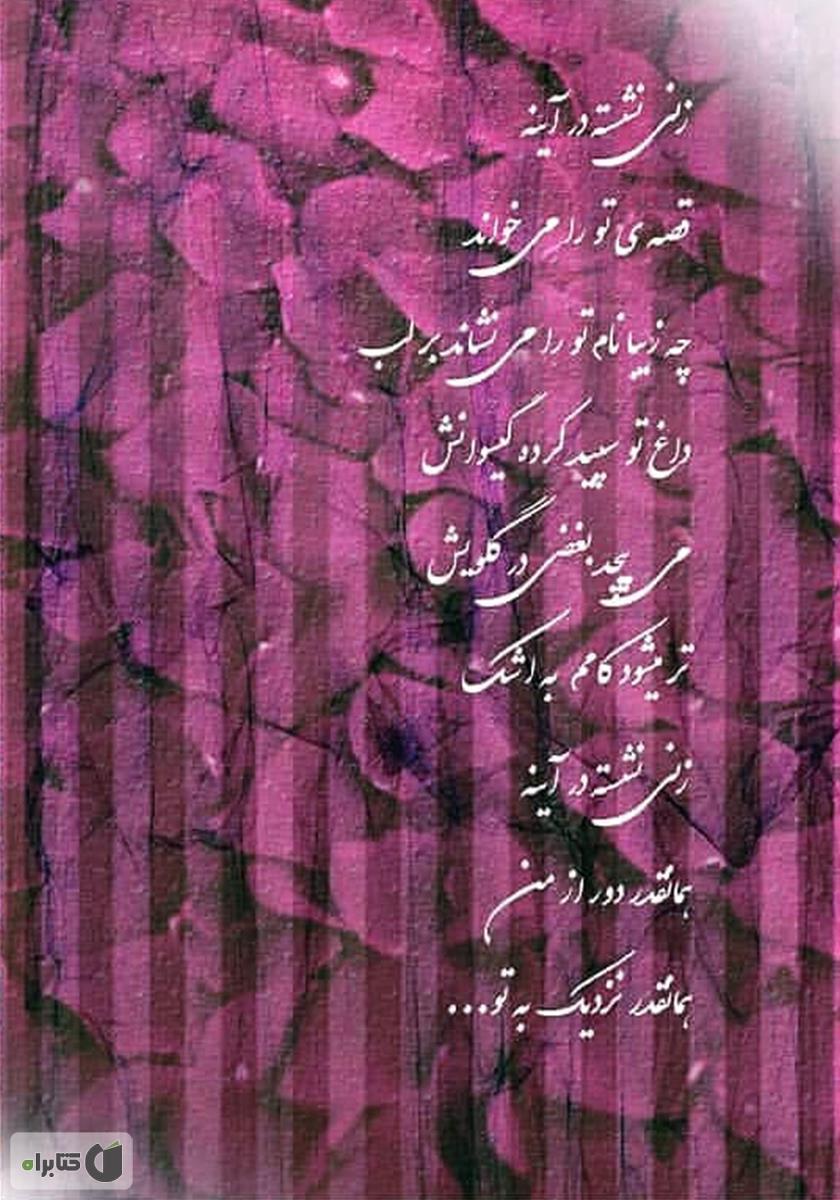 زنی نشسته در آینه
قصه ی تو را می خواند
چه زیبا نام تو را می نشاند بر لب
داغ تو سپید کرده گیسوانش
می پیچد بغضی در گلویش
تر میشود کامم به اشک
زنی نشسته در آینه
همانقدر دور از من
همانقدر نزدیک به تو...
کتابراه